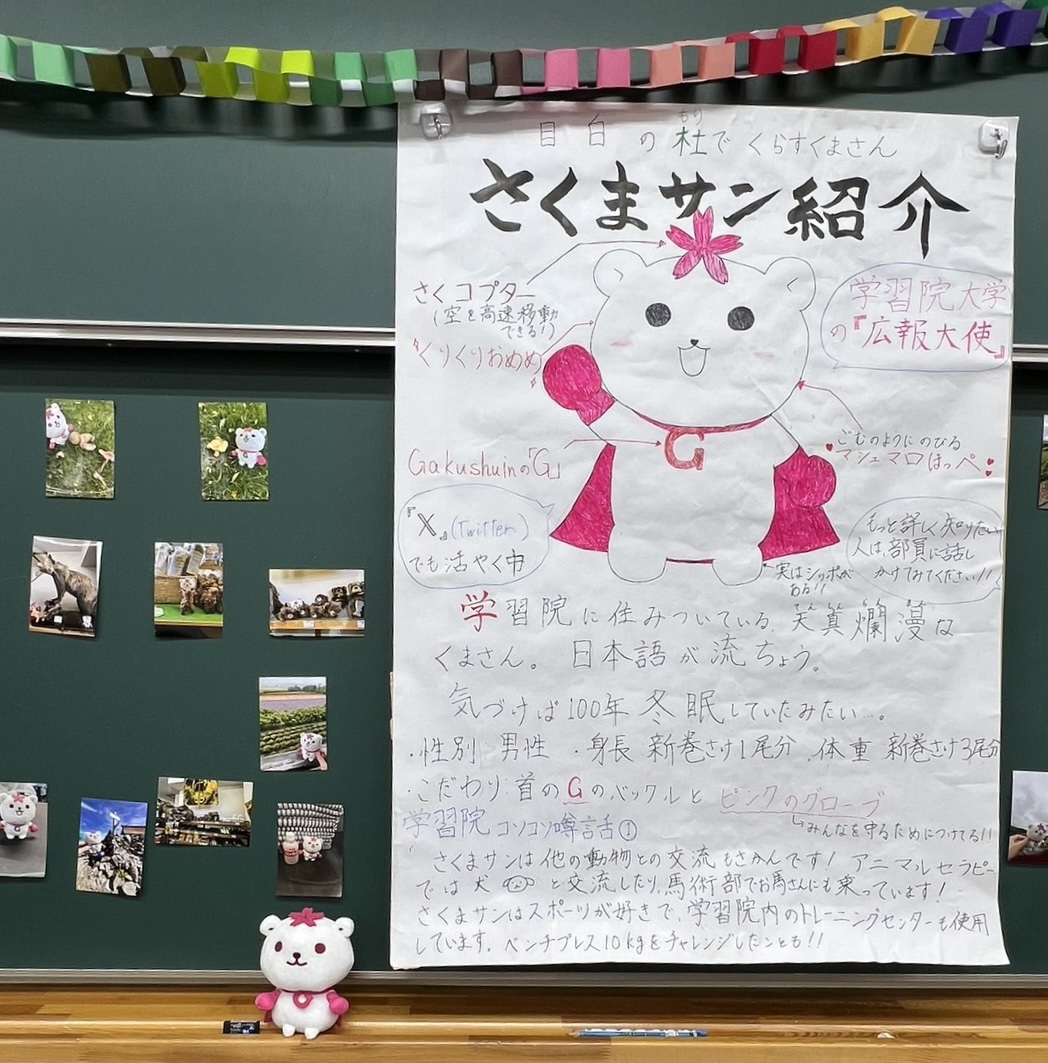 目白の杜でくらすくまさん
もり
さくまサン紹介
さくコプター
(空を高速移動
できる!!)
"くりくりおめめ"
学習院大学
の『広報大使』
Gakushuinの「G」
G
ごむのようにのびる
マシュマロほっぺ
『X』(Twitter)
でも活やく中
もっと詳しく知りたい
人は、部員に話し
かけてみてください!!
実はシッポが
ある!!
学習院に住みついている、天真爛漫な
くまさん。日本語が流ちょう。
気づけば100年冬眠していたみたい…。
・性別 男性 ・身長 新巻さけ1尾分 ・体重 新巻さけ3尾分
・こだわり:首のGのバックルとピンクのグローブ
↳みんなを守るためにつけてる!!
学習院コソコソ噂話①
さくまサンは他の動物との交流もさかんです! アニマルセラピー
では犬と交流したり、馬術部でお馬さんにも乗っています!
さくまサンはスポーツが好きで、学習院内のトレーニングセンターも使用
しています。ベンチプレス10kgをチャレンジしたことも!!